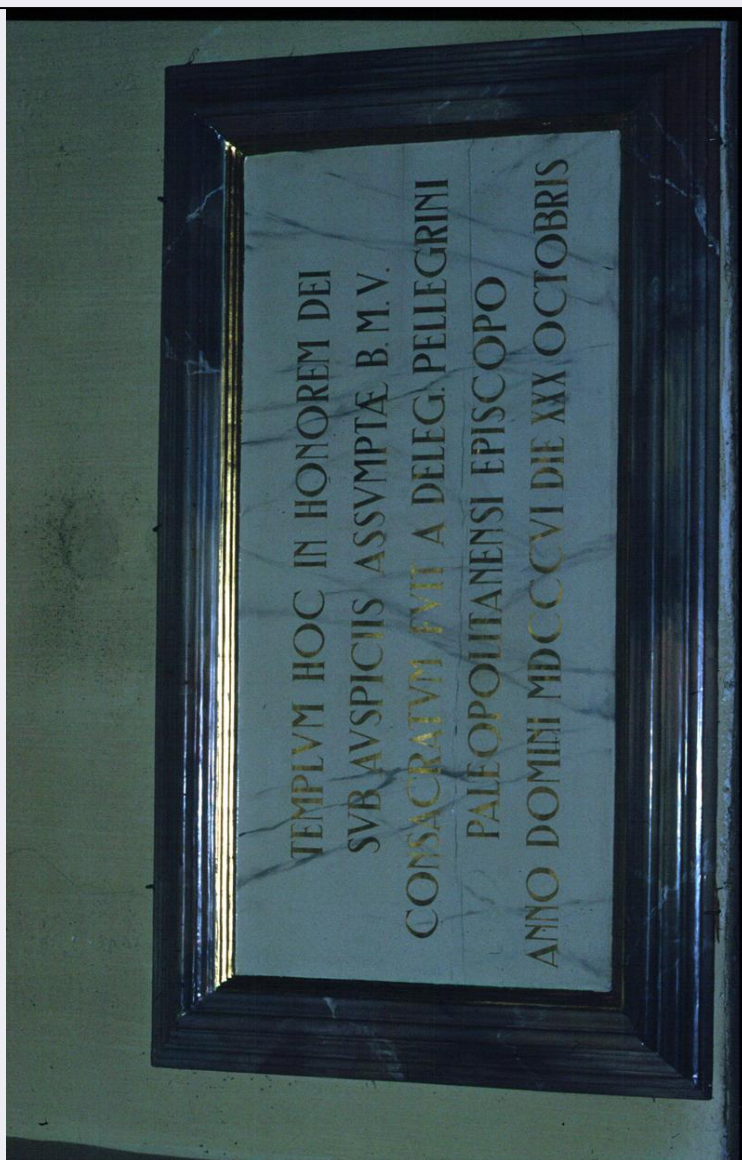 TEMPLVM HOC IN HONOREM DEI
SVB AVSPICIIS ASSVMPTÆ B. M. V.
CONSACRATVM FVIT A DELEG. PELLEGRINI
PALEOPOLITANENSI EPISCOPO
ANNO DOMINI MDCCCVI DIE XXX OCTOBRIS